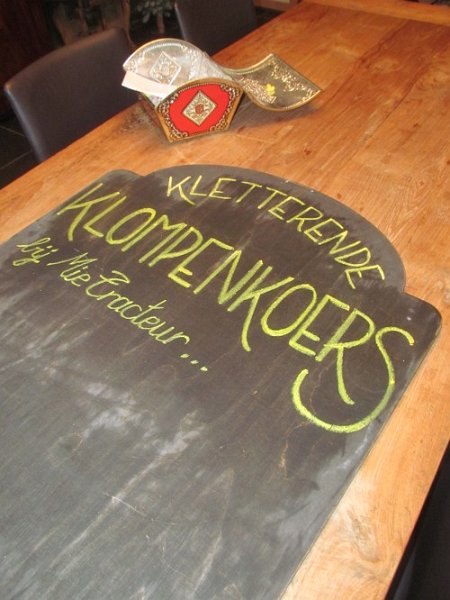 KLETTERENDE
KLOMPENKOERS
bij Mie Tracteur...